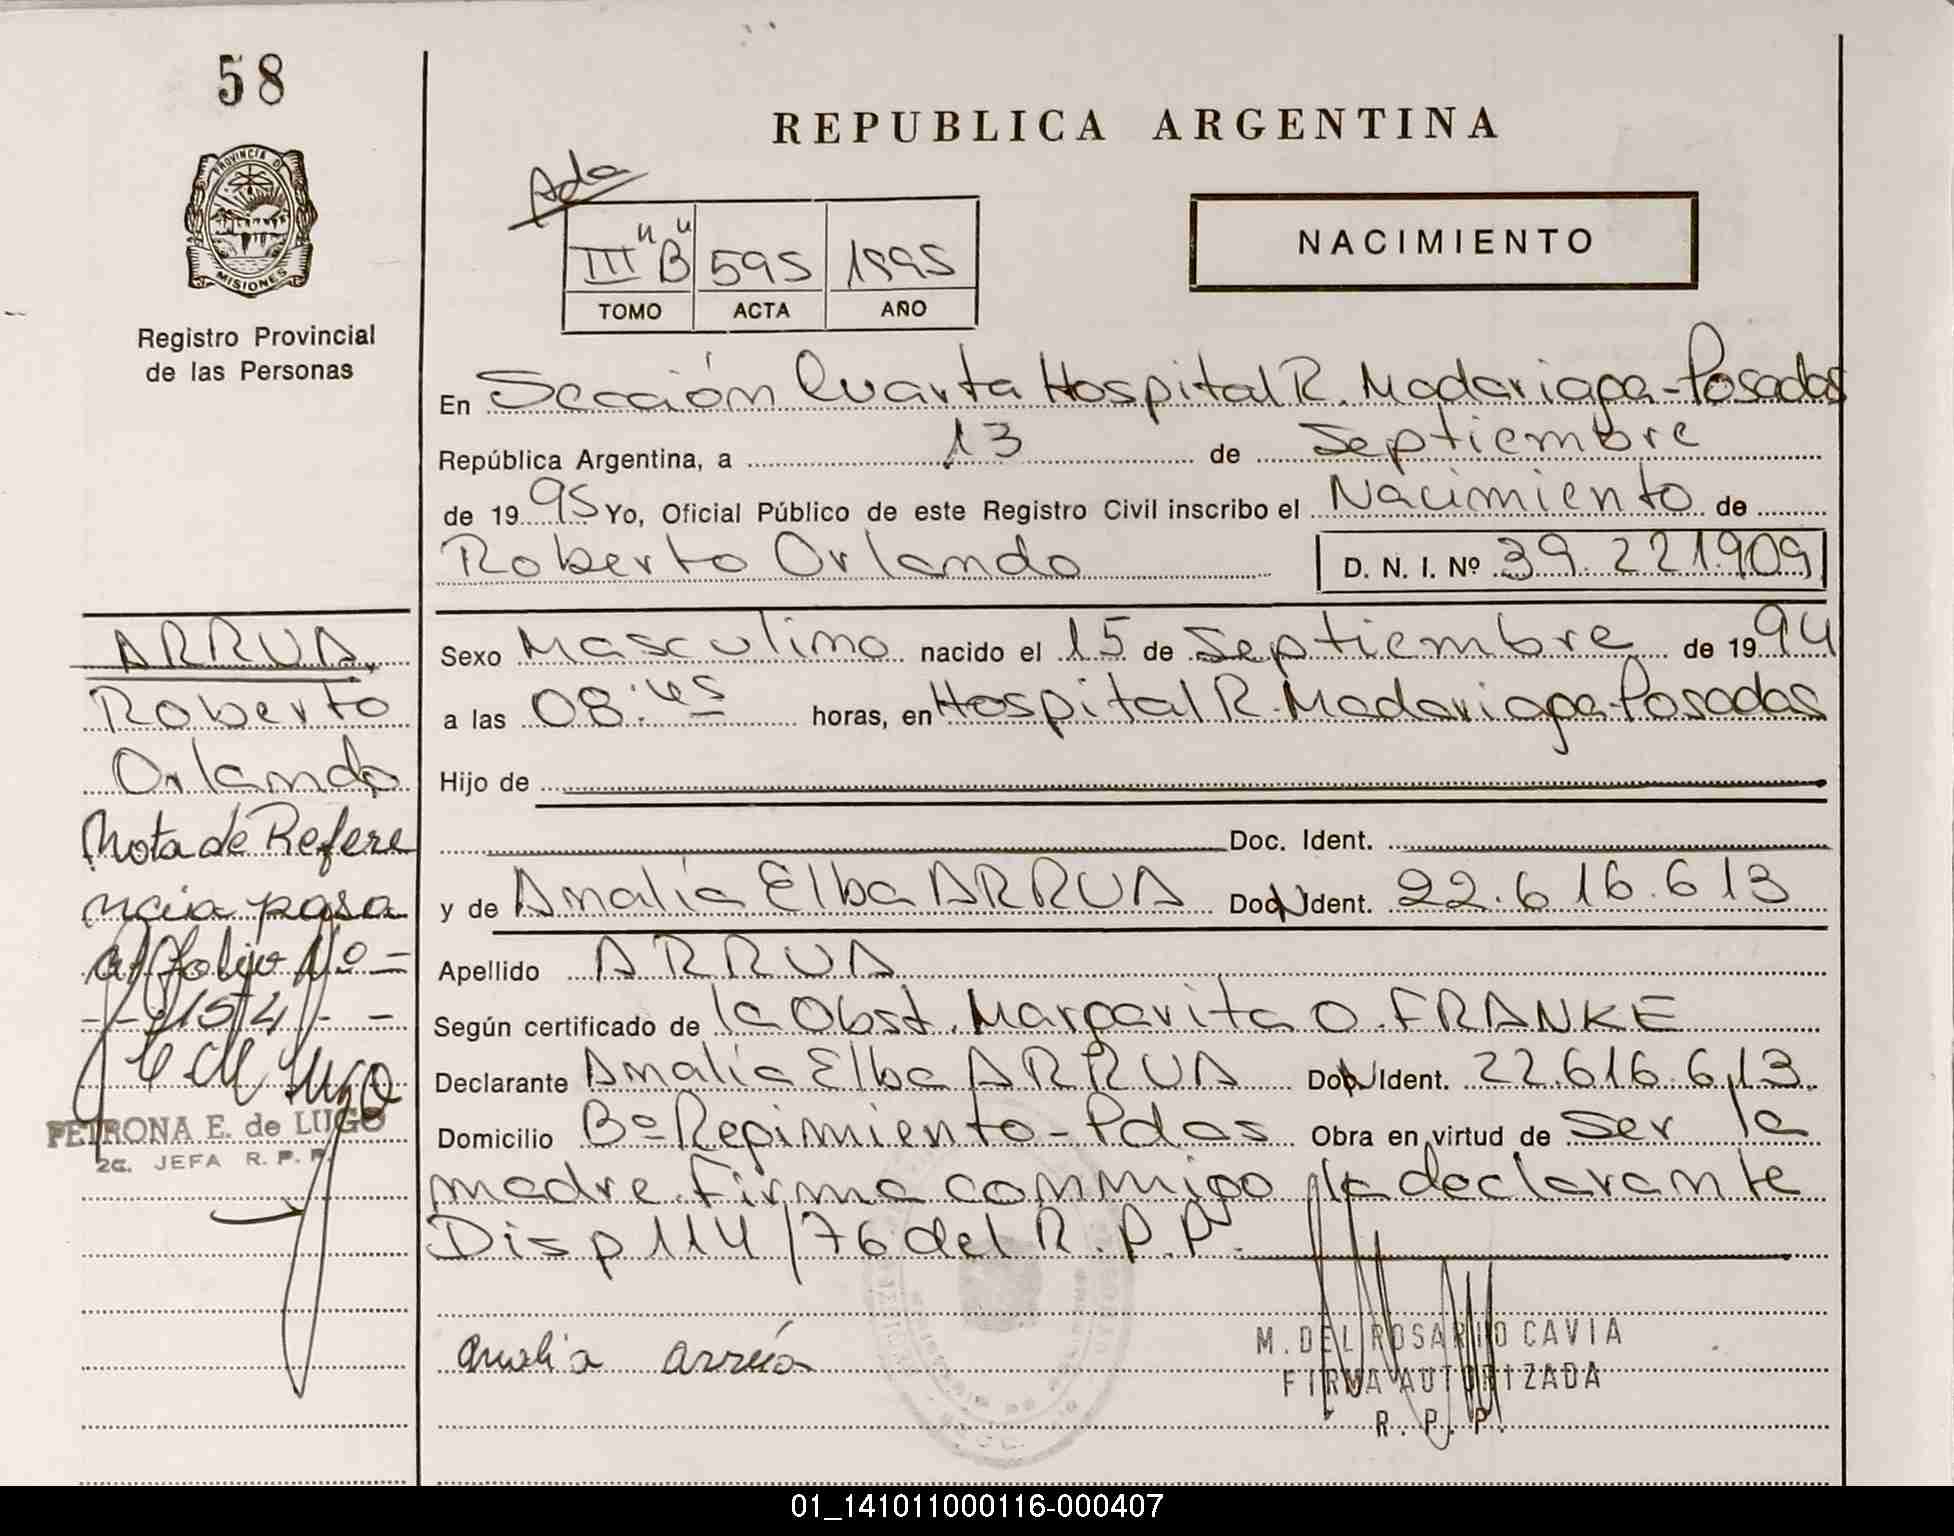 58
REPUBLICA ARGENTINA
PROVINCIA D
MISIONES
Registro Provincial
de las Personas
Ada
III "B" 595 1995
TOMO ACTA AÑO
NACIMIENTO
En Sección Cuarta Hospital R. Madariaga - Posadas
República Argentina, a 13 de Septiembre
de 1995 Yo, Oficial Público de este Registro Civil inscribo el Nacimiento de
Roberto Orlando D. N. I. Nº 39.221.909
Sexo Masculino nacido el 15 de Septiembre de 1994
a las 08:45 horas, en Hospital R. Madariaga Posadas
Hijo de
Doc. Ident.
y de Amalia Elba ARRUA Doc. Ident. 22.616.613
Apellido ARRUA
Según certificado de la Obst. Margarita O. FRANKE
Declarante Amalia Elba ARRUA Doc. Ident. 22.616.613
Domicilio Bº Regimiento - Pdas Obra en virtud de Ser la
madre. Firma conmigo la declarante
Disp 114/76 del R.P.P.
Amalia Arrúa
M. DEL ROSARIO CAVIA
FIRMA AUTORIZADA
R. P. P.
ARRUA,
Roberto
Orlando
Nota de Refere
ncia pasa
al folio Nº =
- - 154 - -
E de Lugo
PETRONA E. de LUGO
2a. JEFA R. P. P.
01_141011000116-000407